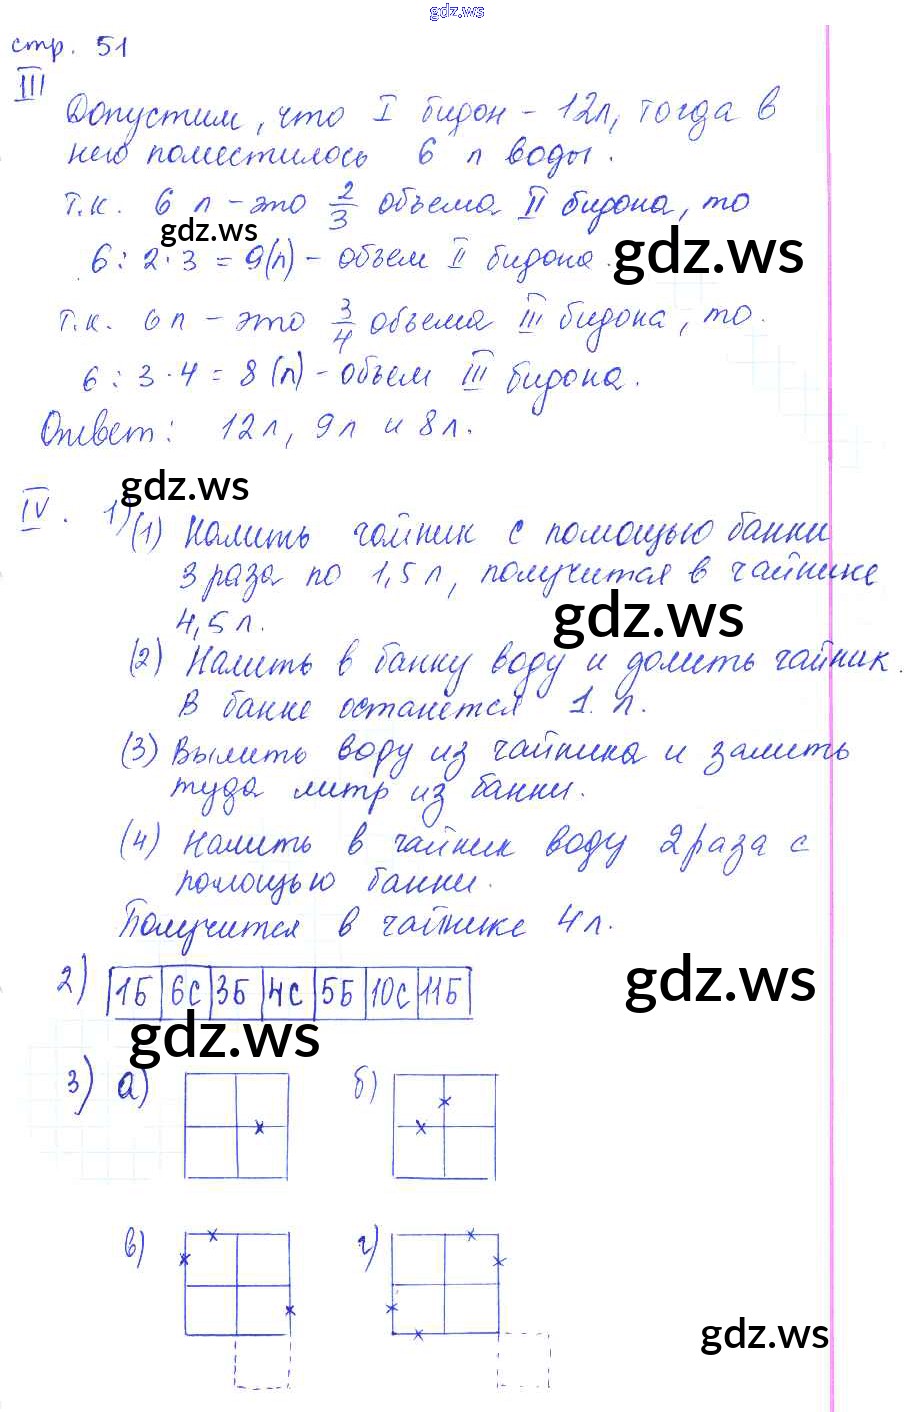 gdz.ws
стр. 51
III
Допустим, что I бидон - 12л, тогда в
него поместилось 6 л воды.
т.к. 6 л - это 2/3 объема II бидона, то
gdz.ws
6 : 2 · 3 = 9(л) - объем II бидона.
gdz.ws
т.к. 6 л - это 3/4 объема III бидона, то.
6 : 3 · 4 = 8 (л) - объем III бидона.
Ответ: 12л, 9л и 8л.
gdz.ws
IV. 1) (1) Налить чайник с помощью банки
3 раза по 1,5 л, получится в чайнике
4,5 л.
gdz.ws
(2) Налить в банку воду и долить чайник.
В банке останется 1 л.
(3) Вылить воду из чайника и залить
туда литр из банки.
(4) Налить в чайник воду 2 раза с
помощью банки.
Получится в чайнике 4 л.
2) 1Б 6С 3Б 4С 5Б 10С 11Б
gdz.ws
gdz.ws
3) а) б)
в) г)
gdz.ws